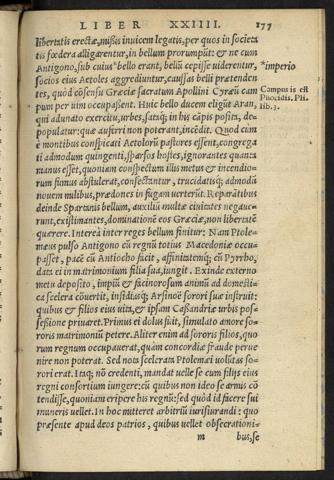 LIBER XXIIII. 177
libertatis erectæ, missis inuicem legatis, per quos in societa
tis fœdera alligarentur, in bellum prorumpūt: & ne cum
Antigono, sub cuius* bello erant, bellū cepisse uiderentur,
*imperio
socios eius Aetoles aggrediuntur, caussas belli prætenden
tes, quòd cōsensu Græciæ sacratum Apollini Cyræū cam
Campus is est
pum per uim occupassent. Huic bello ducem eligūt Aran,
Phocidis. Pli.
qui adunato exercitu, urbes, sataq; in his cāpis posita, de-
lib. 3.
populātur: quæ auferri non poterant, incēdit. Quod cùm
è montibus conspicati Aetolorū pastores essent, congrega
ti admodum quingenti, sparsos hostes, ignorantes quanta
manus esset, quoniam conspectum illis metus & incendio-
rum fumus abstulerat, consectantur, trucidatisq; admodū
nouem milibus, prædones in fugam uerterūt. Reparātibus
deinde Spartanis bellum, auxiliū multæ ciuitates negaue-
runt, existimantes, dominationē eos Græciæ, non libertatē
quærere. Interea inter reges bellum finitur: Nam Ptole-
mæus pulso Antigono cū regnū totius Macedoniæ occu-
passet, pacē cū Antiocho facit, affinitatemq; cū Pyrrho,
data ei in matrimonium filia sua, iungit. Exinde externo
metu deposito, impiū & facinorosum animū ad domesti-
ca scelera cōuertit, insidiasq; Arsinoë sorori suæ instruit:
quibus & filios eius uita, & ipsam Cassandriæ urbis pos-
sessione priuaret. Primus ei dolus fuit, simulato amore so-
roris matrimoniū petere. Aliter enim ad sororis filios, quo
rum regnum occupauerat, quam concordiæ fraude perue
nire non poterat. Sed nota sceleratæ Ptolemæi uolūtas so-
rori erat. Itaq; nō credenti, mandat uelle se cum filijs eius
regni consortium iungere: cū quibus non ideo se armis cō
tendisse, quoniam eripere his regnū: sed quòd id facere sui
muneris uellet. In hoc mitteret arbitriū iurisiurandi: quo
præsente apud deos patrios, quibus uellet obsecrationi-
m bus, se